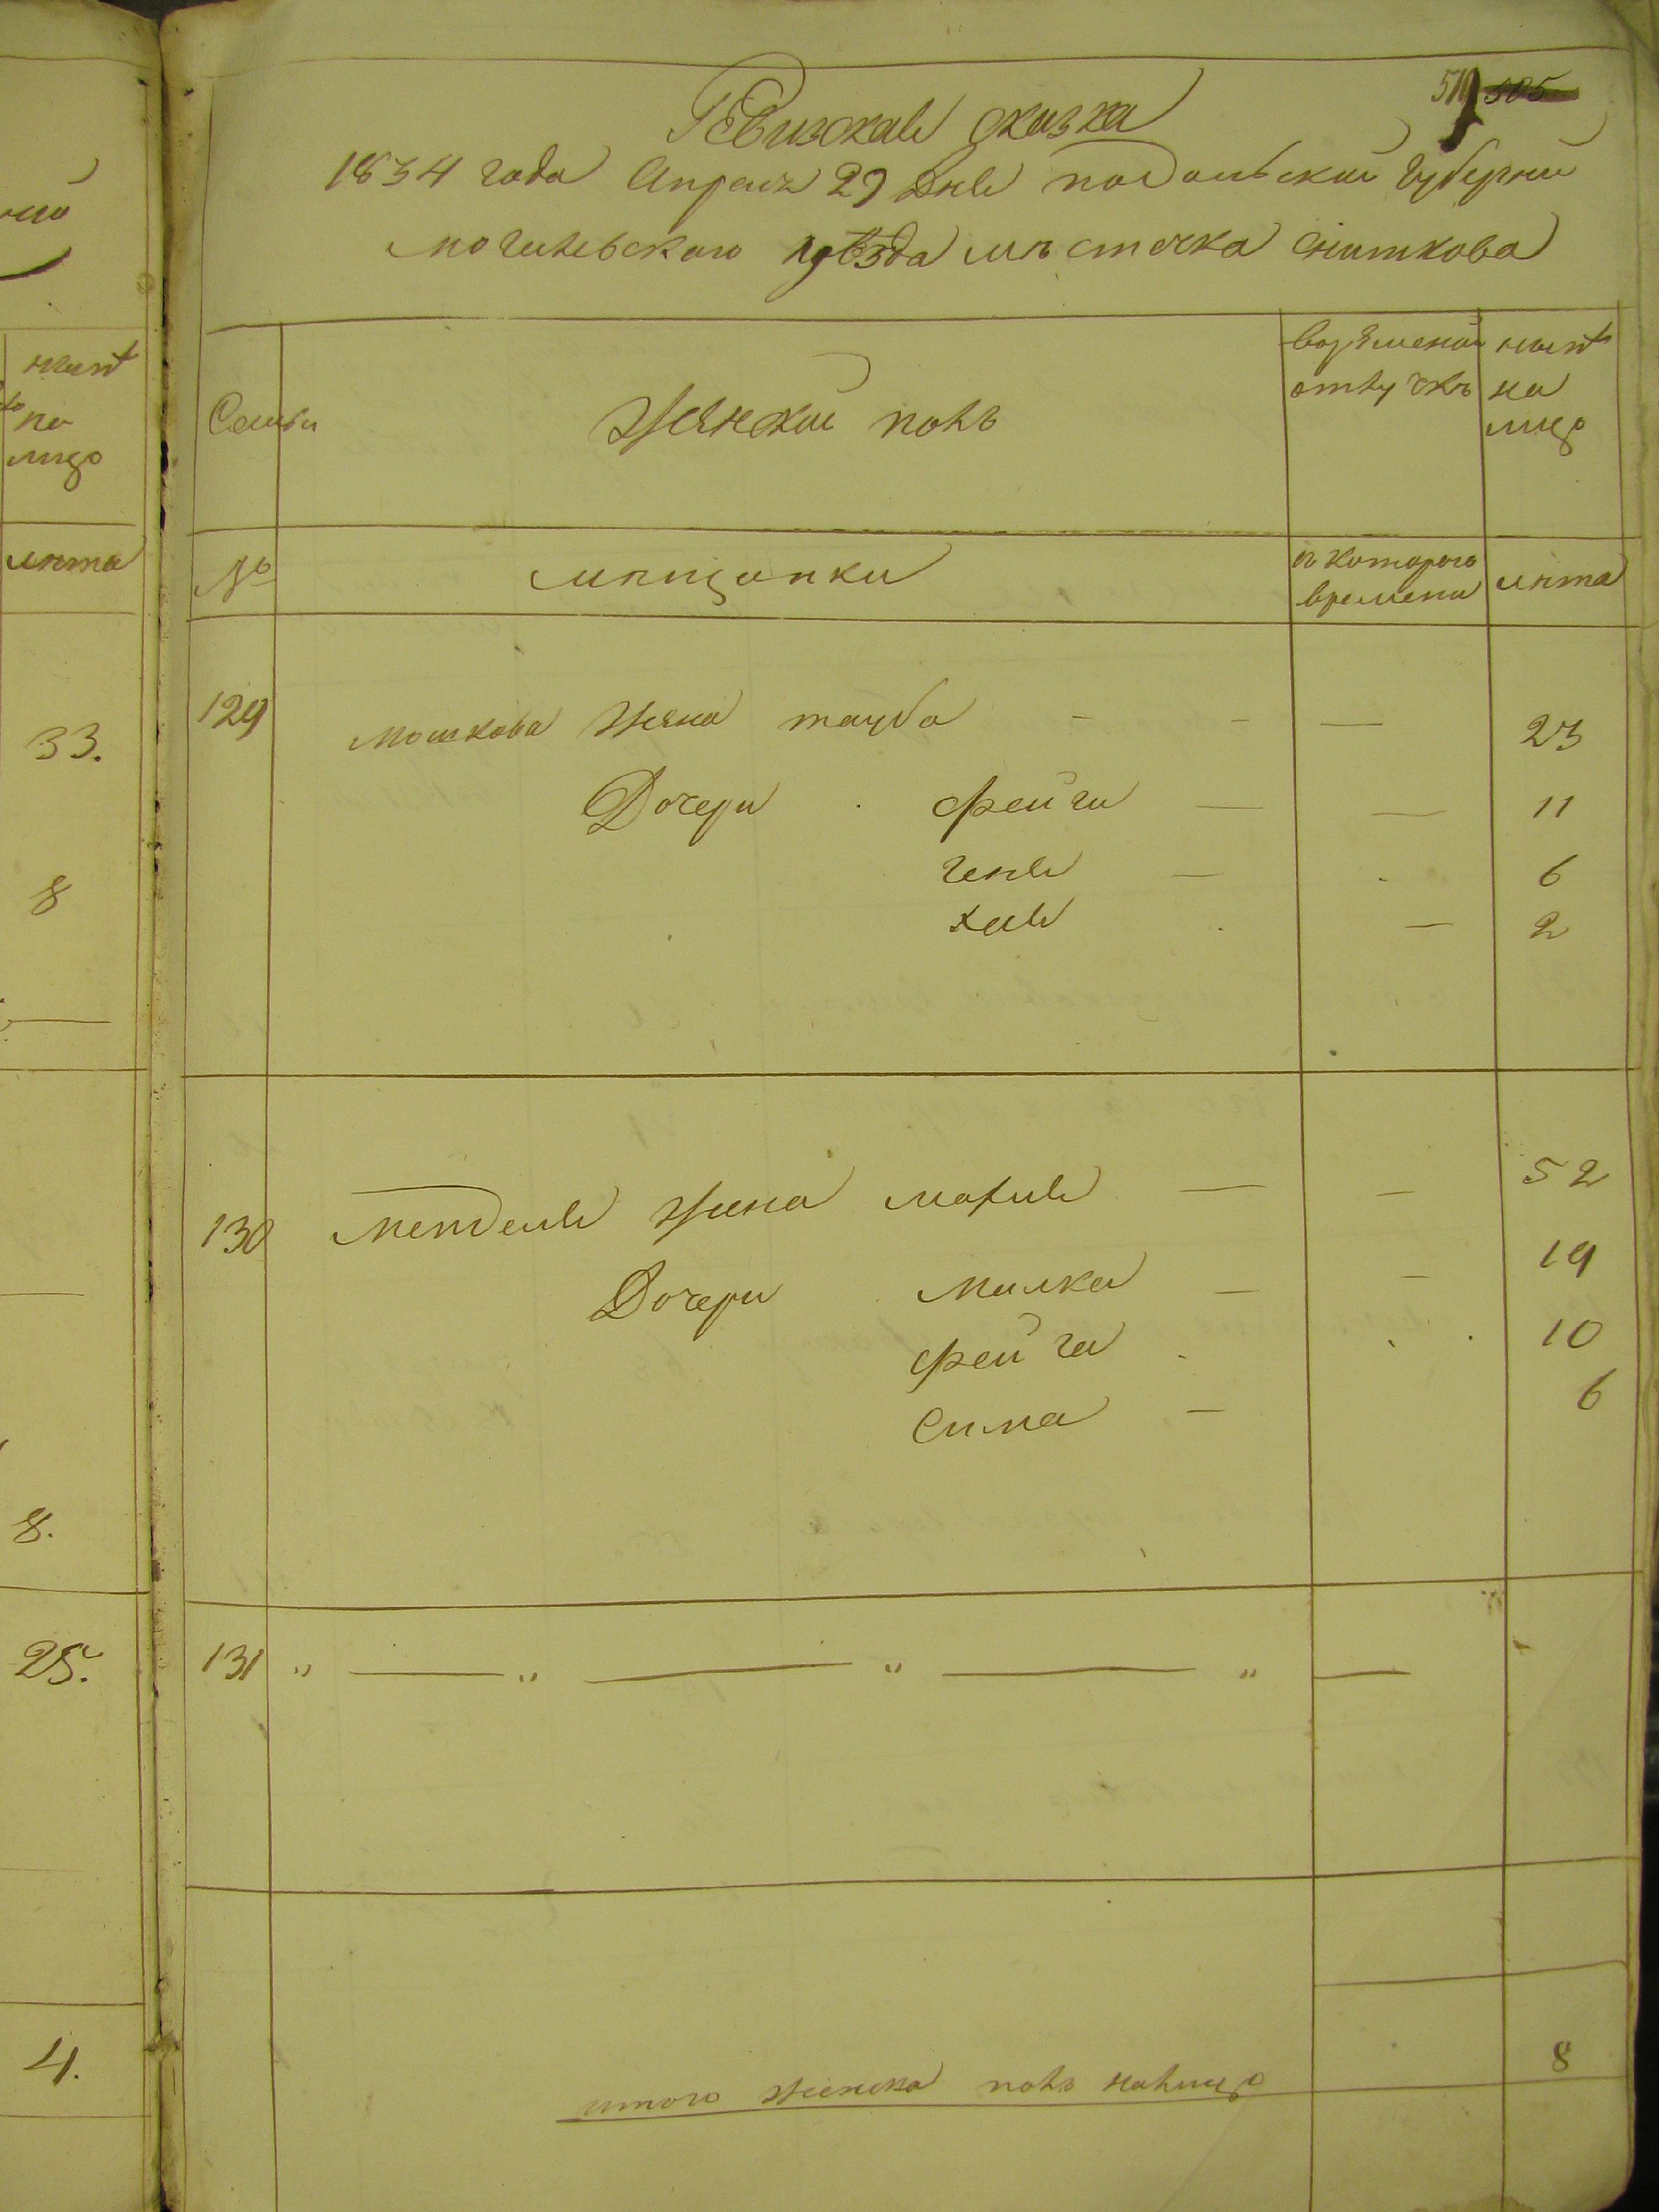 510 505
Ревизская сказка
1834 года Апреля 29 дня подольской губернии
могилевского уѣзда мѣстечка Сниткова
Семьи
Женской полъ
во временной
отлучкѣ
нынѣ
на
лицо
№
мѣщанки
съ которого
времени
лѣта
129 мошкова жена тауба - - — 23
Дочери фейга — — 11
геня — - 6
хая — 2
130 менделя жена малия — — 52
Дочери малка — — 19
фейга 10
Сима — 6
131 „ — „ — „ — „ —
итого женска полъ налицо 8
нынѣ
на
лицо
лѣта
33.
8
8.
25.
4.